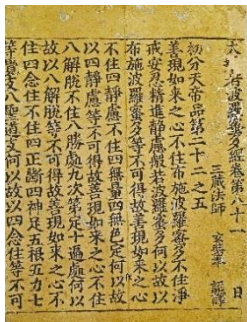 大般若波羅蜜多經卷第八十一 日
三藏法師 玄奘奉 詔譯
初分天帝品第二十二之五
善現如來之心不住布施波羅蜜多不住淨
戒安忍精進靜慮般若波羅蜜多何以故以
布施波羅蜜多等不可得故善現如來之心
不住四靜慮不住四無量四無色定何以故
以四靜慮等不可得故善現如來之心不住
八解脫不住八勝處九次第定十遍處何以
故以八解脫等不可得故善現如來之心不
住四念住不住四正斷四神足五根五力七
等覺支八聖道支何以故以四念住等不可